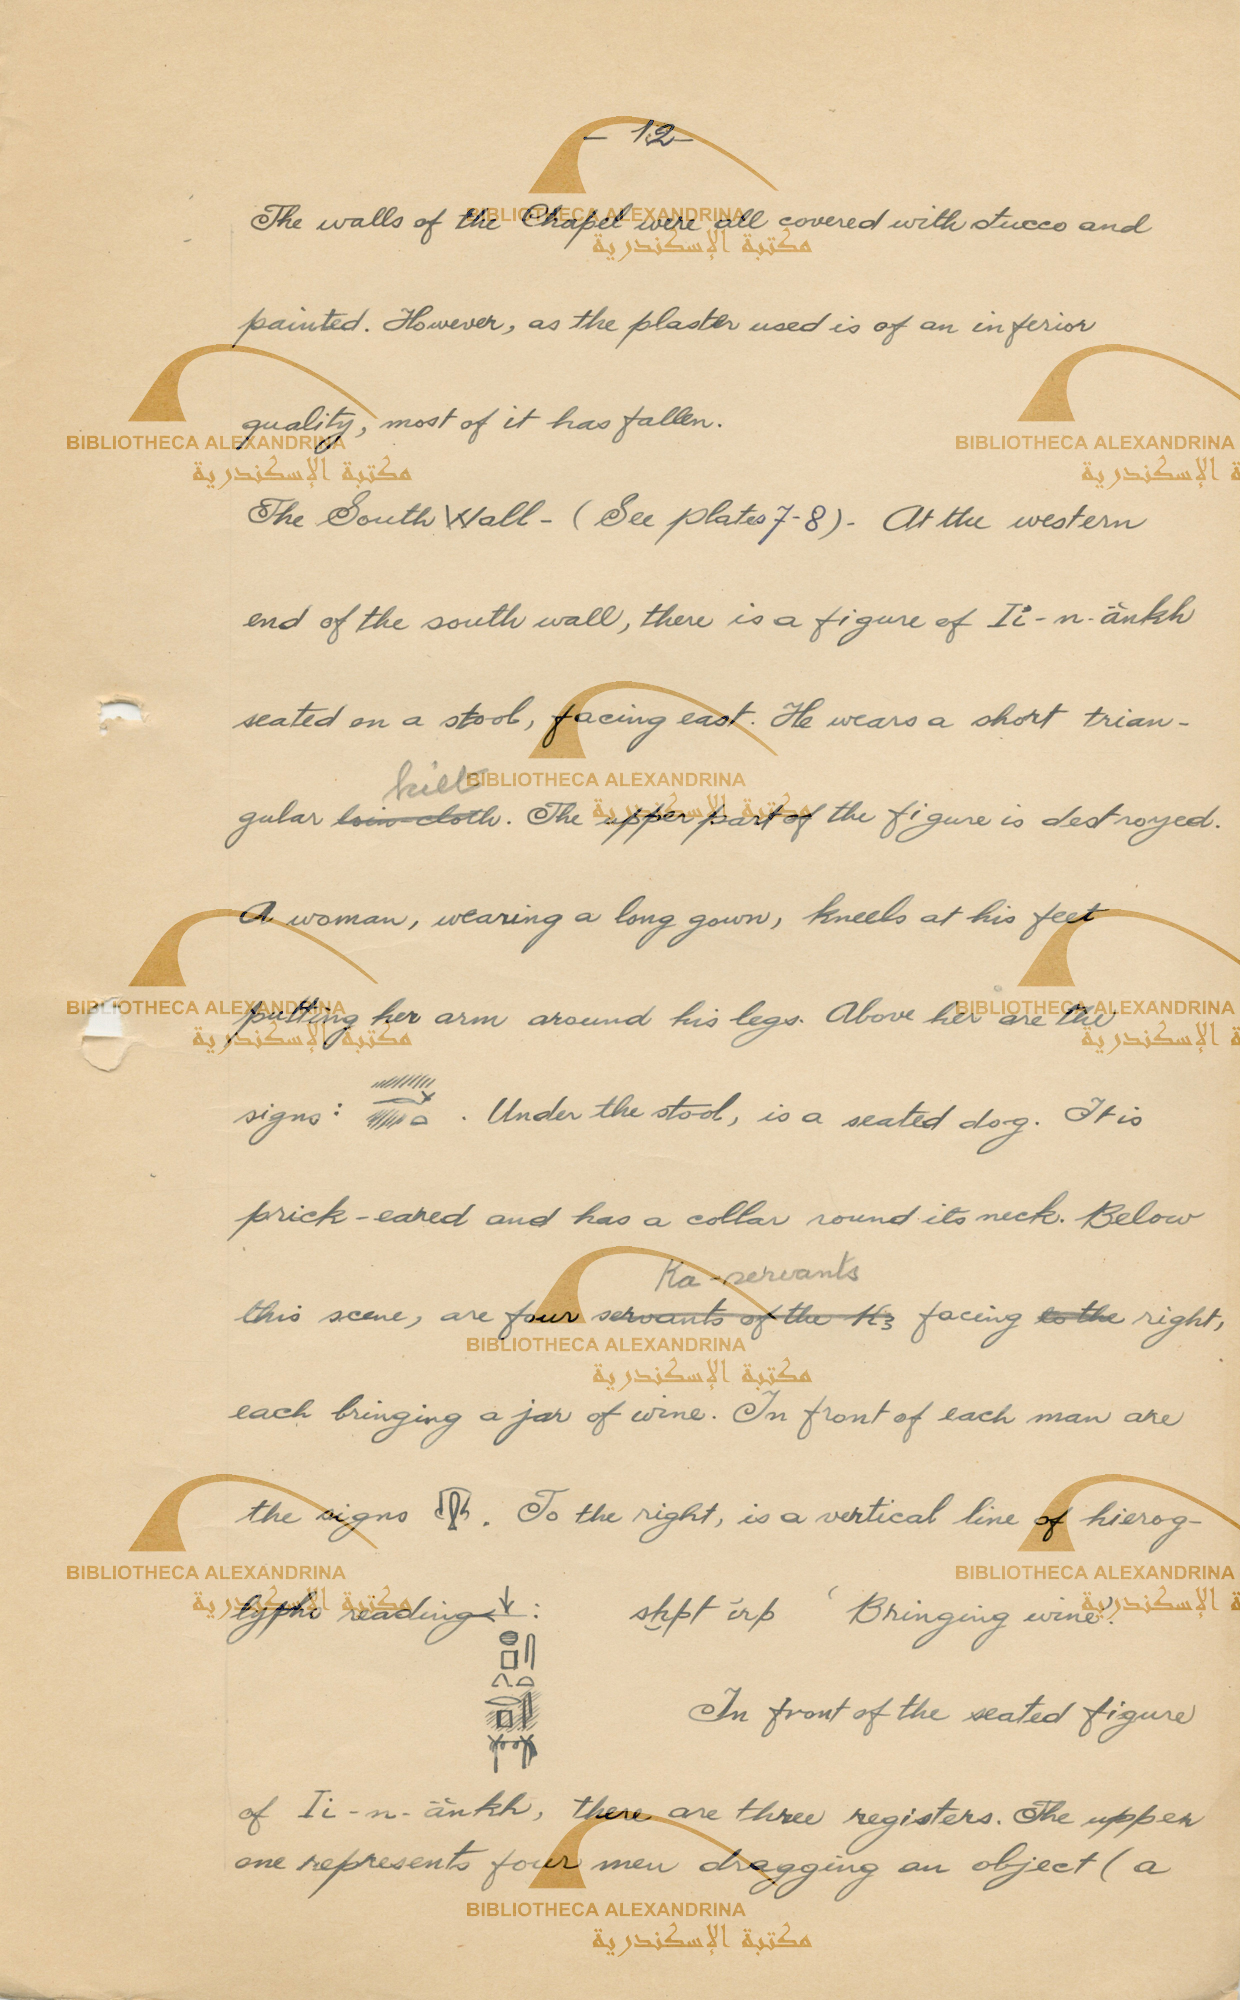 - 12 -
The walls of the Chapel were all covered with stucco and
painted. However, as the plaster used is of an inferior
quality, most of it has fallen.
The South Wall - (See plates 7-8). - At the western
end of the south wall, there is a figure of Ii-n-ānkh
seated on a stool, facing east. He wears a short trian-
kilt
gular loin-cloth. The upper part of the figure is destroyed.
A woman, wearing a long gown, kneels at his feet
putting her arm around his legs. Above her are the
signs: . Under the stool, is a seated dog. It is
prick-eared and has a collar round its neck. Below
Ka-servants
this scene, are four servants of the K3 facing to the right,
each bringing a jar of wine. In front of each man are
the signs . To the right, is a vertical line of hierog-
lyphs reading : sḫpt irp 'Bringing wine'.
In front of the seated figure
of Ii-n-ānkh, there are three registers. The upper
one represents four men dragging an object (a
BIBLIOTHECA ALEXANDRINA
مكتبة الإسكندرية